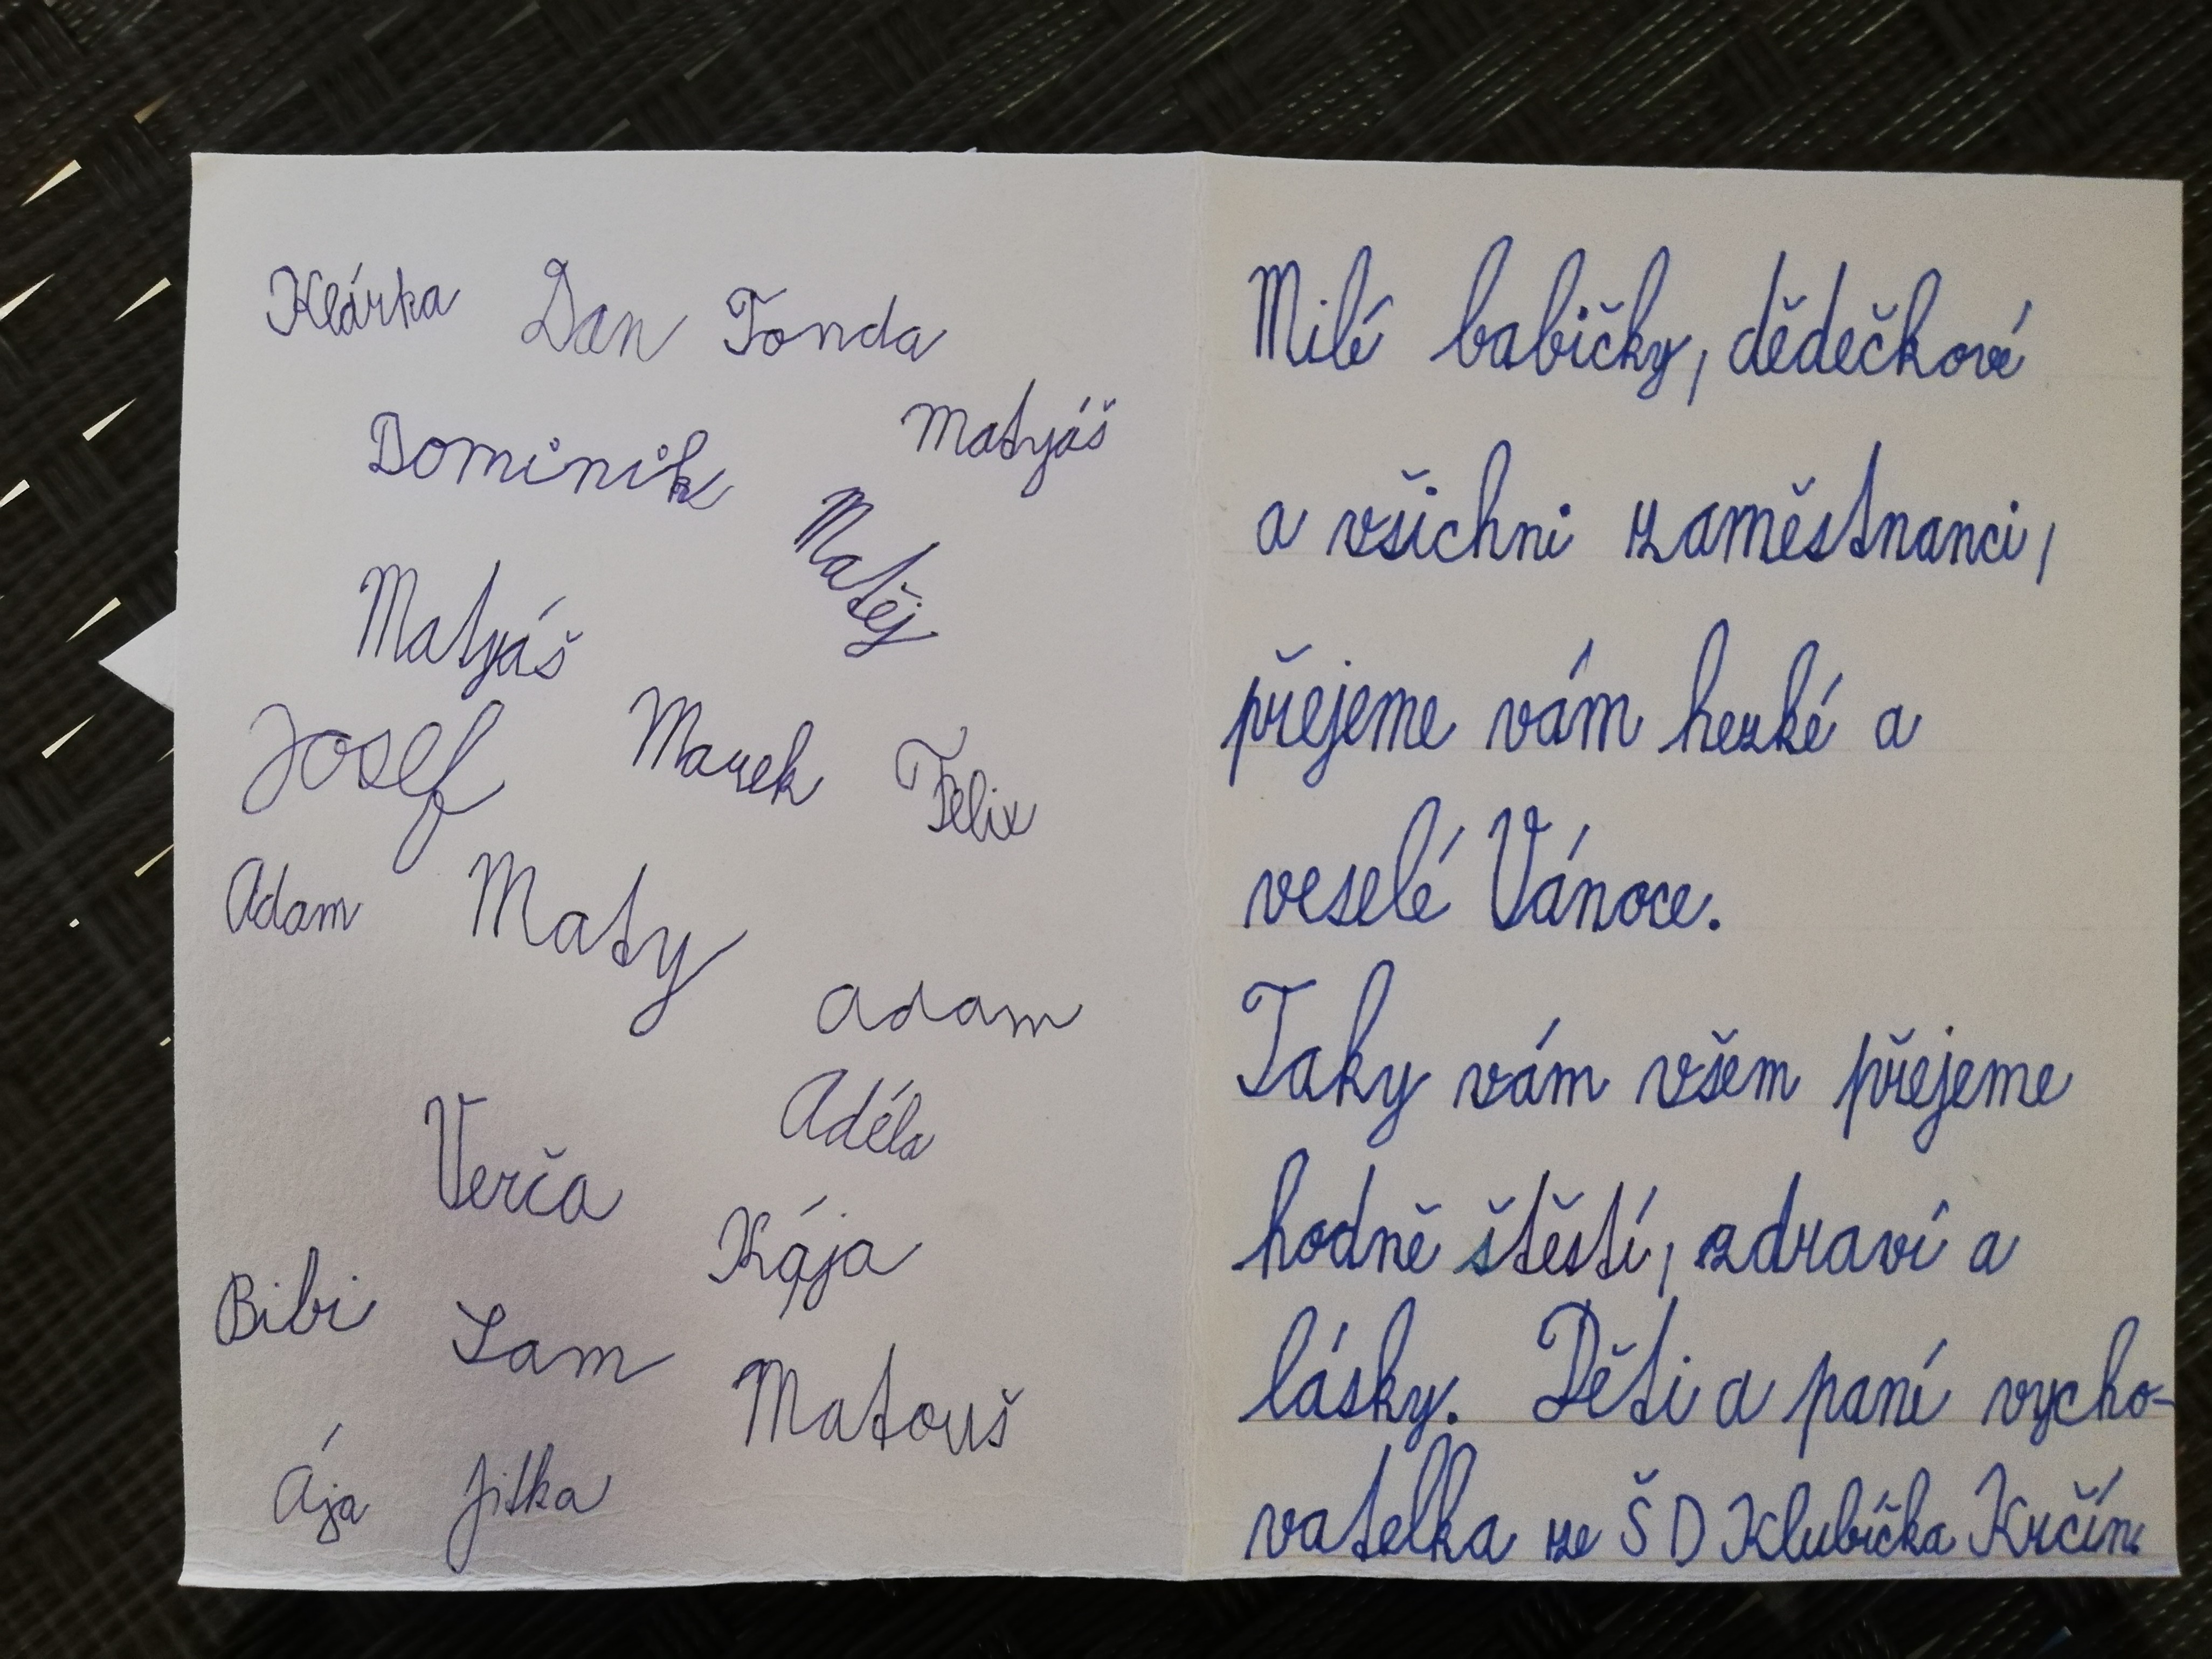 Klárka Dan Tonda
Matyáš
Dominik
Matěj
Matyáš
Josef Marek Felix
Adam Maty
Adam
Adéla
Verča
Kája
Bibi Sam
Matouš
Ája Jitka
Milé babičky, dědečkové
a všichni zaměstnanci,
přejeme vám hezké a
veselé Vánoce.
Taky vám všem přejeme
hodně štěstí, zdraví a
lásky. Děti a paní vycho-
vatelka ze ŠD Klubíčka Krčín.